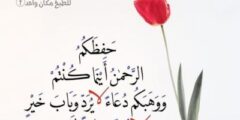 حَفِظَكُمُ
الرَّحْمٰنُ أَيْنَمَا كُنْتُمْ
وَوَهَبَكُمْ دُعَاءً لَا يُرَدُّ وَبَابَ خَيْرٍ